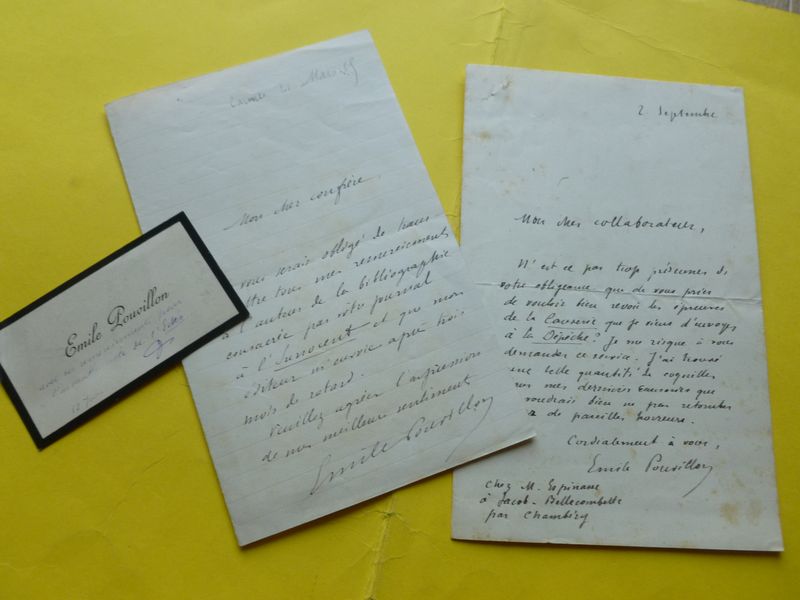 21 Mars
Mon cher confrère,
vous serais obligé de trans
ettre tous mes remerciements
à l'auteur de la bibliographie
consacrée par votre journal
à l'Innocent et que mon
éditeur m'envoie après trois
mois de retard.
Veuillez agréer l'impression
de mes meilleurs sentiments
Emile Pouvillon
Emile Pouvillon
avec ses remerciements pour
2 Septembre
Mon cher collaborateur,
N'est ce pas trop présumer de
votre obligeance que de vous prier
de vouloir bien revoir les épreuves
de la Causerie que je viens d'envoyer
à la Dépêche? Je me risque à vous
demander ce service. J'ai trouvé
une telle quantité de coquilles
mes dernières causeries que
voudrais bien ne pas retomber
de pareilles horreurs.
Cordialement à vous,
Emile Pouvillon
chez M. Espinasse
à Jacob-Bellecombette
par Chambéry